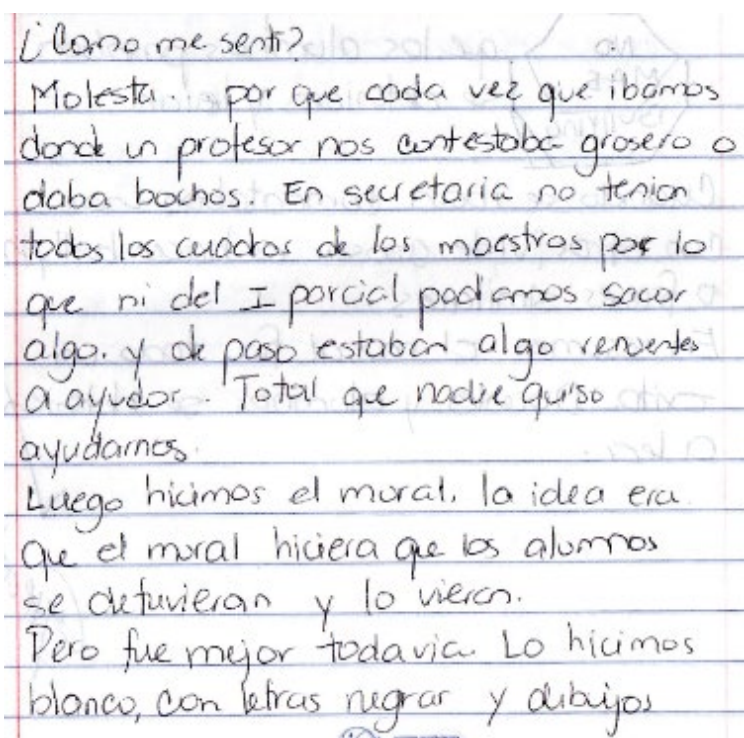 ¿Como me sentí?
Molesta. por que cada vez que ibamos
donde un profesor nos contestaba grosero o
daba bochos. En secretaria no tenian
todos los cuadros de los maestros por lo
que ni del I parcial podiamos sacar
algo. y de paso estaban algo renuentes
a ayudar. Total que nadie quiso
ayudarnos.
Luego hicimos el mural. la idea era
que el mural hiciera que los alumnos
se detuvieran y lo vieran.
Pero fue mejor todavia. Lo hicimos
blanco, con letras negrar y dibujos